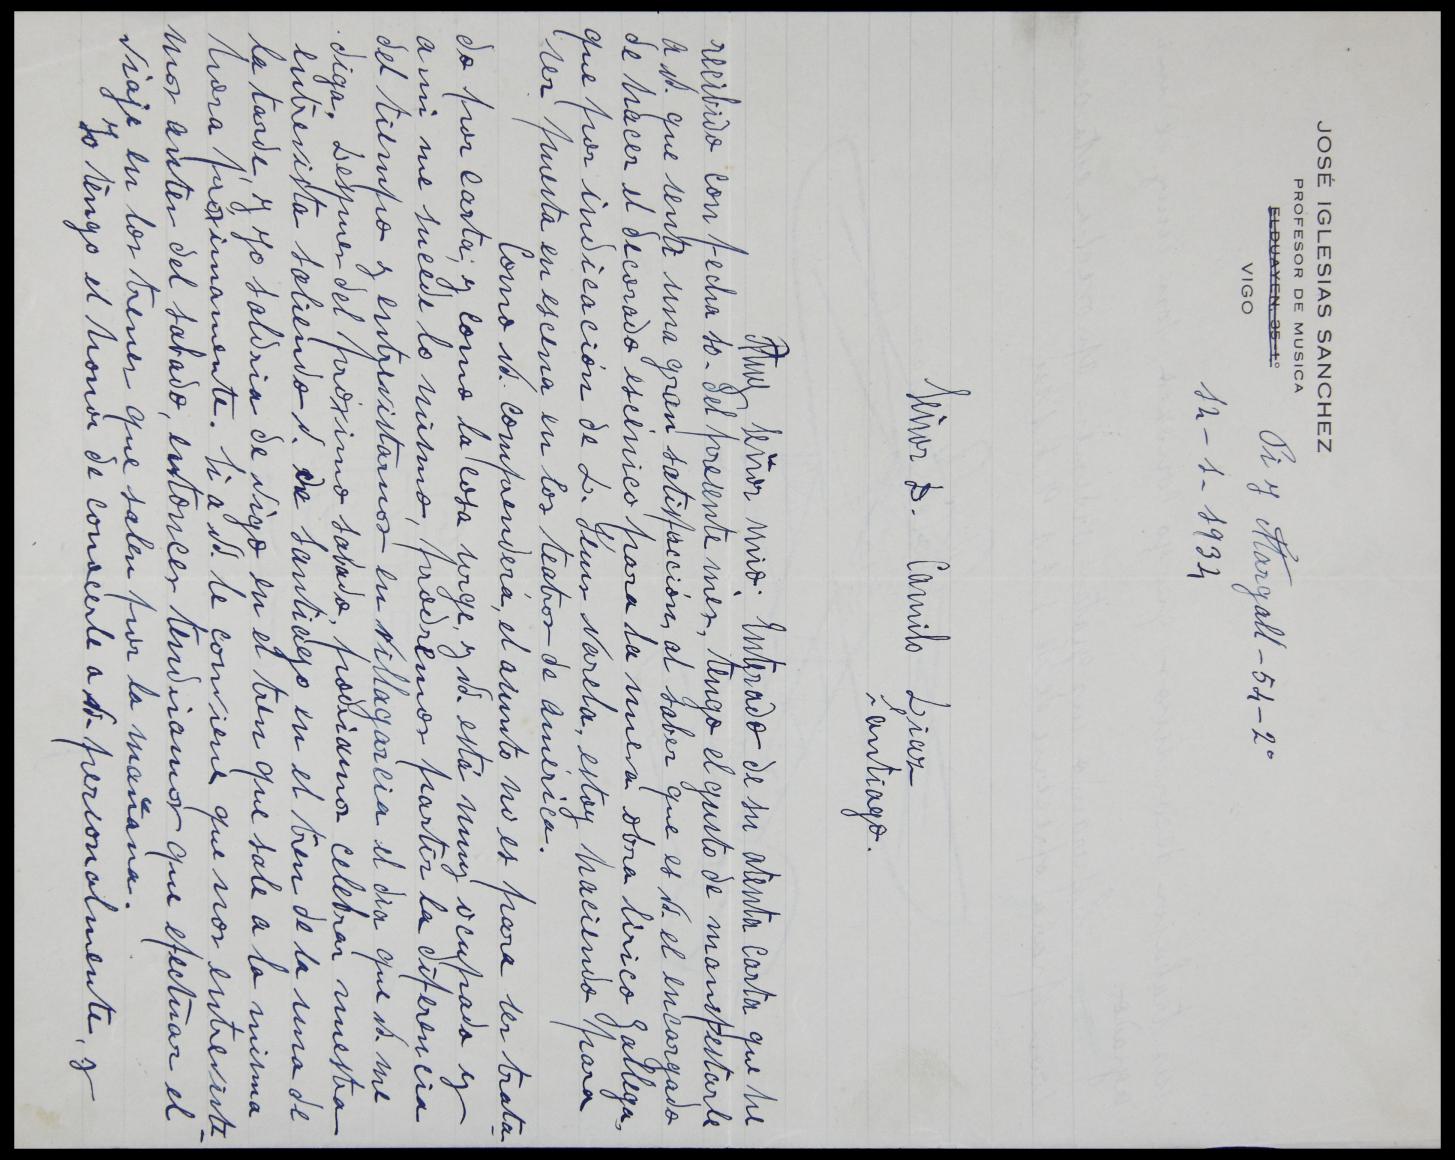 JOSÉ IGLESIAS SANCHEZ
PROFESOR DE MUSICA
ELDUAYEN, 35-1°
VIGO
Pi y Margall-54-2°
12-1-1934
Señor D. Camilo Diaz
Santiago.
Muy señor mio: Enterado de su atenta carta que he
recibido con fecha 10- del presente mes, tengo el gusto de manifestarle
a Vd. que sentí una gran satisfacción, al saber que es Vd. el encargado
de hacer el decorado escénico para la nueva obra lírico Gallega,
que por indicación de D. Genus Varela, estoy haciendo para
ser puesta en escena en los teatros de america.
Como Vd. comprenderá, el asunto no es para ser trata-
do por carta; y como la cosa urge, y Vd. está muy ocupado y
a mi me sucede lo mismo, podremos partir la diferencia
del tiempo y entrevistarnos en Villagarcia el dia que Vd. me
diga. Despues del próximo sabado, podriamos celebrar nuestra
entrevista saliendo V. de Santiago en el tren de la una de
la tarde, y yo saldria de Vigo en el tren que sale a la misma
hora próximamente. Si a Vd. le conviene que nos entrevistá-
mos antes del sabado, entonces tendriamos que efectuar el
viaje en los trenes que salen por la mañana.
Yo tengo el honor de conocerle a Vd. personalmente, y